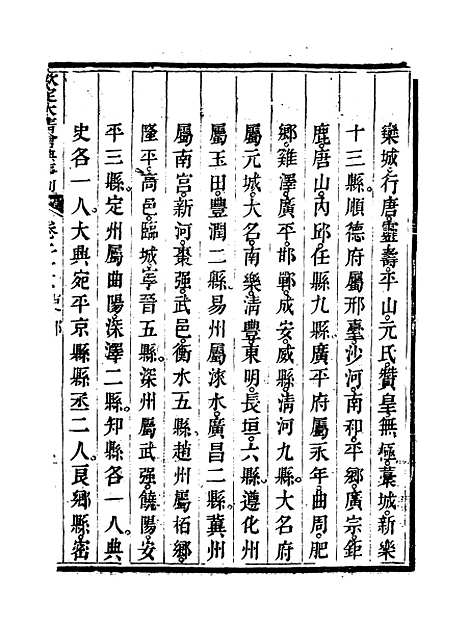 欒城。行唐。靈壽。平山。元氏。贊皇。無極。藁城。新樂
十三縣。順德府屬邢臺。沙河。南和。平鄉。廣宗。鉅
鹿。唐山。內邱。任縣九縣。廣平府屬永年。曲周。肥
鄉。雞澤。廣平。邯鄲。成安。威縣。清河九縣。大名府
屬元城。大名。南樂。清豐。東明。長垣。六縣。遵化州
屬玉田。豐潤二縣。易州屬淶水。廣昌二縣。冀州
屬南宮。新河。棗强。武邑。衡水五縣。趙州屬栢鄉。
隆平。高邑。臨城。寧晉五縣。深州屬武强。饒陽。安
平三縣。定州屬曲陽。深澤二縣。知縣各一人。典
史各一人。大興宛平京縣縣丞二人。良鄉縣。密
欽定大清會典事例